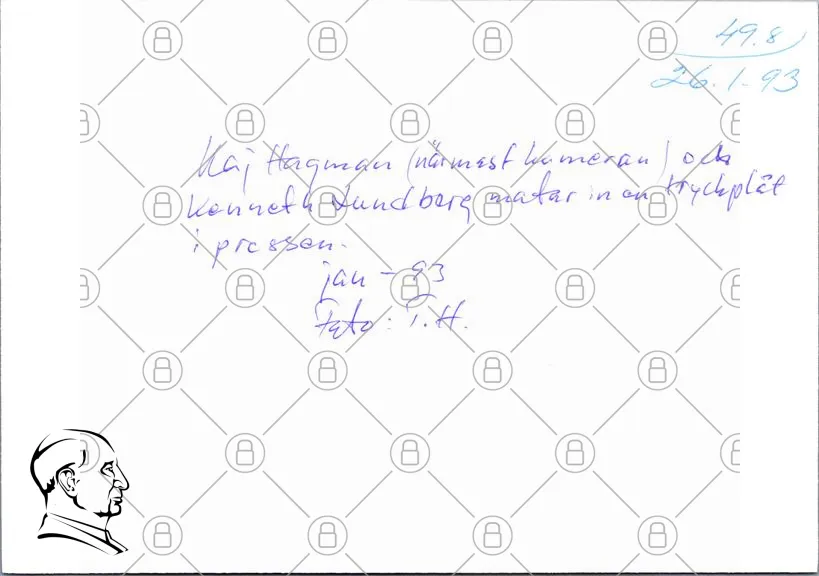 49.8
26.1-93
Kaj Hagman (närmast kameran) och
Kenneth Lundberg matar in en tryckplåt
i pressen.
jan - 93
Foto: T.H.